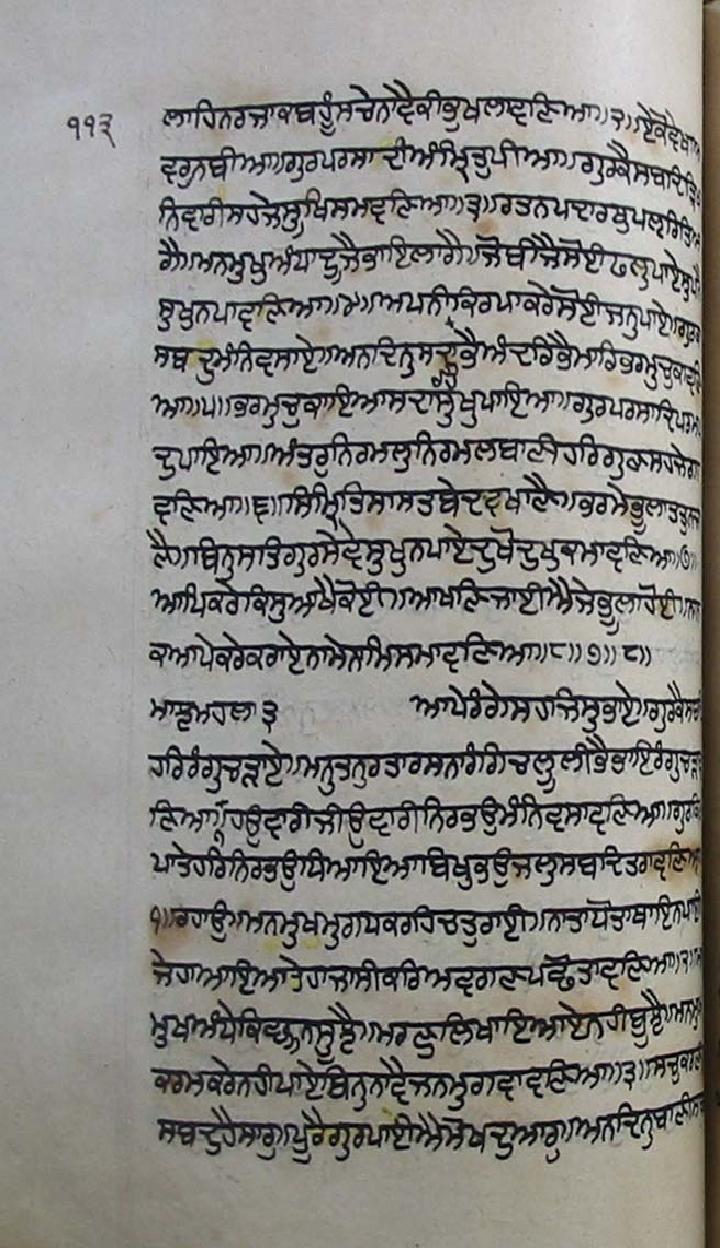 ੧੧੩
ਲਾਹਿਨਰਜਾਕਬਹੂੰਸਚੇਨਾਵੈਕੀਭੁਖਲਾਵਣਿਆ॥੨॥ਏਕੋਵੇਖਾ
ਵਰੁਨਬੀਆ॥ਗੁਰਪਰਸਾਦੀਅੰਮ੍ਰਿਤੁਪੀਆ॥ਗੁਰਕੈਸਬਦਿਤਿ
ਨਿਵਾਰੀਸਹਜੇਸੂਖਿਸਮਾਵਣਿਆ॥੩॥ਰਤਨਪਦਾਰਥੁਪਲਰਿਤਿਆ
ਗੈ॥ਮਨਮੁਖੁਅੰਧਾਦੂਜੈਭਾਇਲਾਗੈ॥ਜੋਬੀਜੈਸੋਈਫਲੁਪਾਏਸੁਪ
ਸੁਖੁਨਪਾਵਣਿਆ॥੪॥ਅਪਨੀਕਿਰਪਾਕਰੇਸੋਈਜਨੁਪਾਏ॥ਗੁਰਕ
ਸਬਦੁਮੰਨਿਵਸਾਏ॥ਅਨਦਿਨੁਸਦਭੈਅੰਦਰਿਭੈਮਾਰਿਭਰਮੁਚੁਕਾਵਣਿ
ਆ॥੫॥ਭਰਮੁਚੁਕਾਇਆਸਦਾਸੁਖੁਪਾਇਆ॥ਗੁਰਪਰਸਾਦਿਪਰਮ
ਦੁਪਾਇਆ॥ਅੰਤਰੁਨਿਰਮਲੁਨਿਰਮਲਬਾਣੀਹਰਿਗੁਣਸਹਜੇਗਾ
ਵਣਿਆ॥੬॥ਸਿਮ੍ਰਿਤਿਸਾਸਤਬੇਦਵਖਾਣੈ॥ਭਰਮੇਭੂਲਾਤਤੁਨਜਾ
ਣੈ॥ਬਿਨੁਸਤਿਗੁਰਸੇਵੇਸੁਖੁਨਪਾਏਦੁਖੋਦੁਖੁਕਮਾਵਣਿਆ॥੭॥
ਆਪਿਕਰੇਕਿਸੁਆਖੈਕੋਈ॥ਆਖਣਿਜਾਈਐਜੇਭੂਲਾਹੋਈ॥ਨਾਨ
ਕਆਪੇਕਰੇਕਰਾਏਨਾਮੇਨਾਮਿਸਮਾਵਣਿਆ॥੮॥੭॥੮॥
ਮਾਝਮਹਲਾ੩ ਆਪੇਰੰਗੇਸਹਜਿਸੁਭਾਏ॥ਗੁਰਕੈਸਬ
ਹਰਿਰੰਗੁਚੜਾਏ॥ਮਨੁਤਨੁਰਤਾਰਸਨਾਰੰਗਿਚਲੂਲੀਭੈਭਾਇਰੰਗੁਚੜਾਵ
ਣਿਆ॥੧॥ਹਉਵਾਰੀਜੀਉਵਾਰੀਨਿਰਭਉਮੰਨਿਵਸਾਵਣਿਆ॥ਗੁਰਕਿ
ਪਾਤੇਹਰਿਨਿਰਭਉਧਿਆਇਆਬਿਖੁਭਉਜਲੁਸਬਦਿਤਰਾਵਣਿਆ
੧॥ਰਹਾਉ॥ਮਨਮੁਖਮੁਗਧਕਰਹਿਚਤੁਰਾਈ॥ਨਾਤਾਧੋਤਾਥਾਇਨਪਾਈ
ਜੇਹਾਆਇਆਤੇਹਾਜਾਸੀਕਰਿਅਵਗਣਪਛੋਤਾਵਣਿਆ॥੨॥ਮ
ਮੁਖਅੰਧੇਕਿਛੂਨਸੂਝੈ॥ਮਰਣੁਲਿਖਾਇਆਏਨਹੀਬੂਝੈ॥ਮਨਮੁ
ਕਰਮਕਰੇਨਹੀਪਾਏਬਿਨੁਨਾਵੈਜਨਮੁਗਵਾਵਣਿਆ॥੩॥ਸਚੁਕਰਣੀ
ਸਬਦੁਹੈਸਾਰੁ॥ਪੂਰੈਗੁਰਪਾਈਐਮੋਖਦੁਆਰੁ॥ਅਨਦਿਨੁਬਾਣੀ